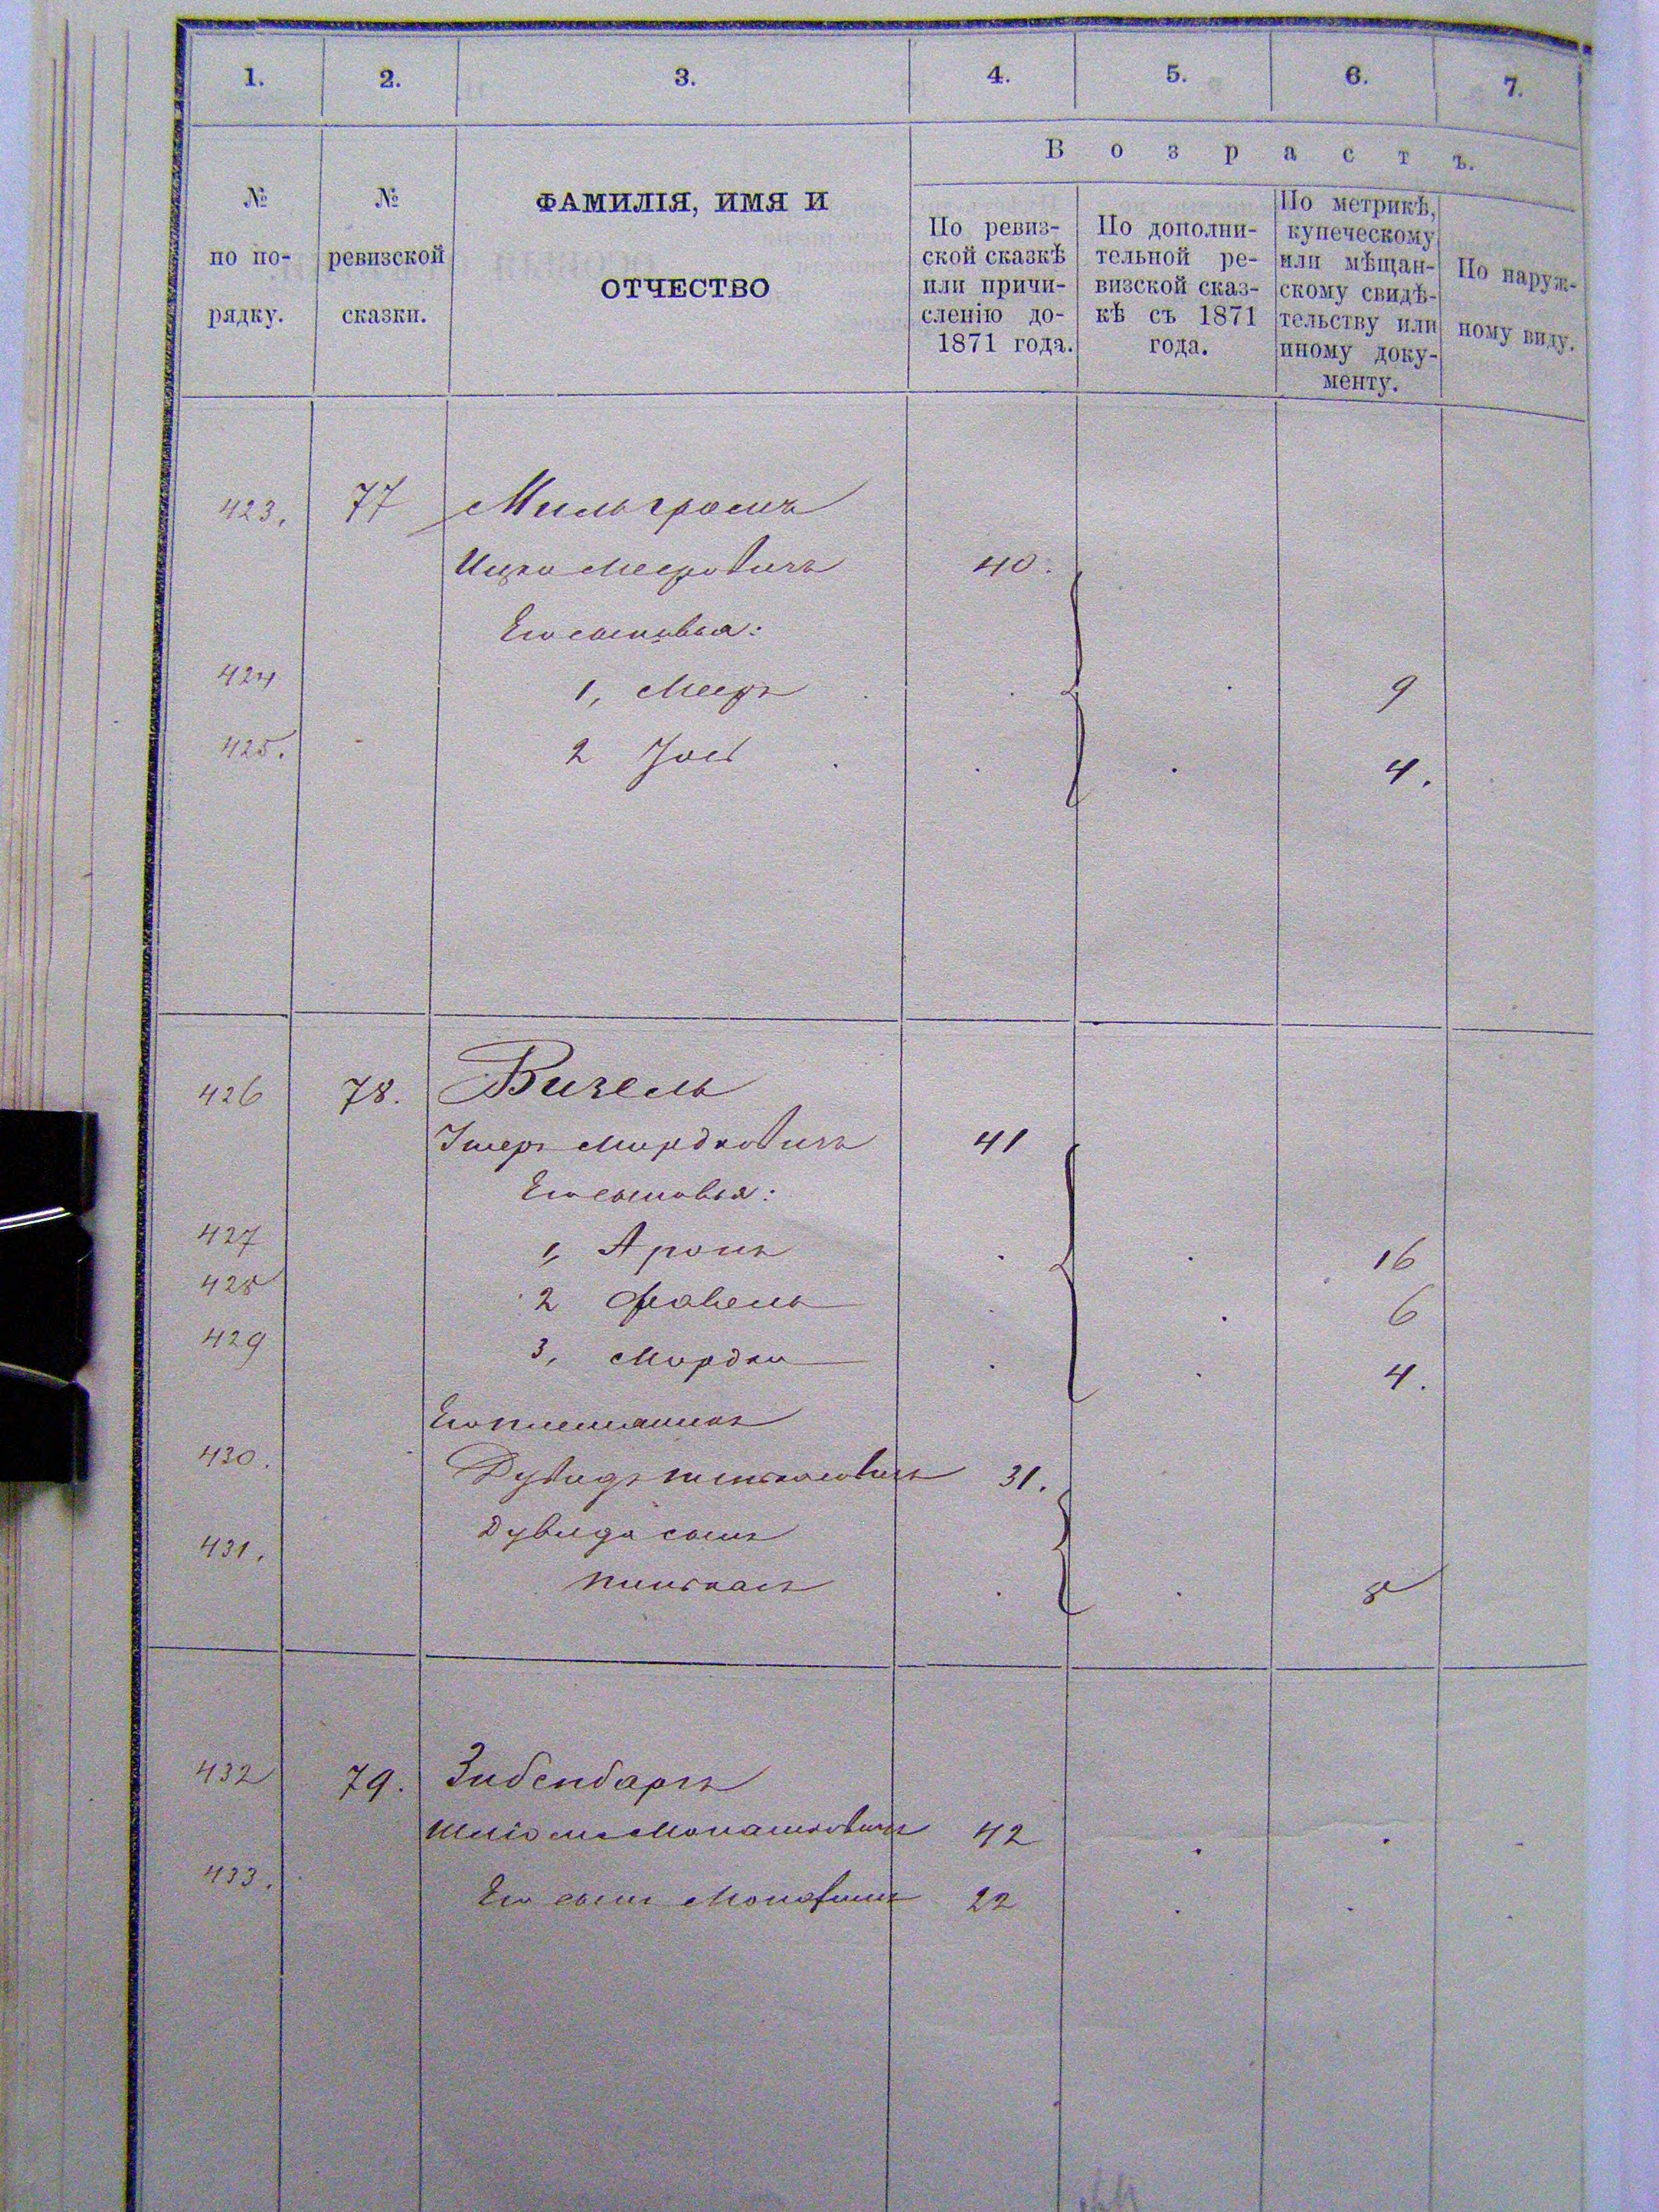 1. 2. 3. 4. 5. 6. 7.
В о з р а с т ъ.
№ по по-рядку.
№ ревизской сказки.
ФАМИЛІЯ, ИМЯ И
ОТЧЕСТВО
По ревиз-
ской сказкѣ
или причи-
сленію до-
1871 года.
По дополни-
тельной ре-
визской сказ-
кѣ съ 1871
года.
По метрикѣ,
купеческому
или мѣщан-
скому свидѣ-
тельству или
иному доку-
менту.
По наруж-
ному виду.
423. 77 Мильгромъ
Ицко Мееровичъ 40.
Его сыновья:
424 1, Мееръ 9
425. 2 Іось 4.
426 78. Визель
Мордковичъ 41
Его сыновья:
427 1, Аронъ 16
428 2 6
429 3, Мордко 4.
Его племянникъ
430. Дувидъ Пинкасовичъ 31.
431. Дувида сынъ
Пинкасъ 8
432 79. Зибенбаръ
Шліома Монашковичъ 42
433. Его сынъ 22